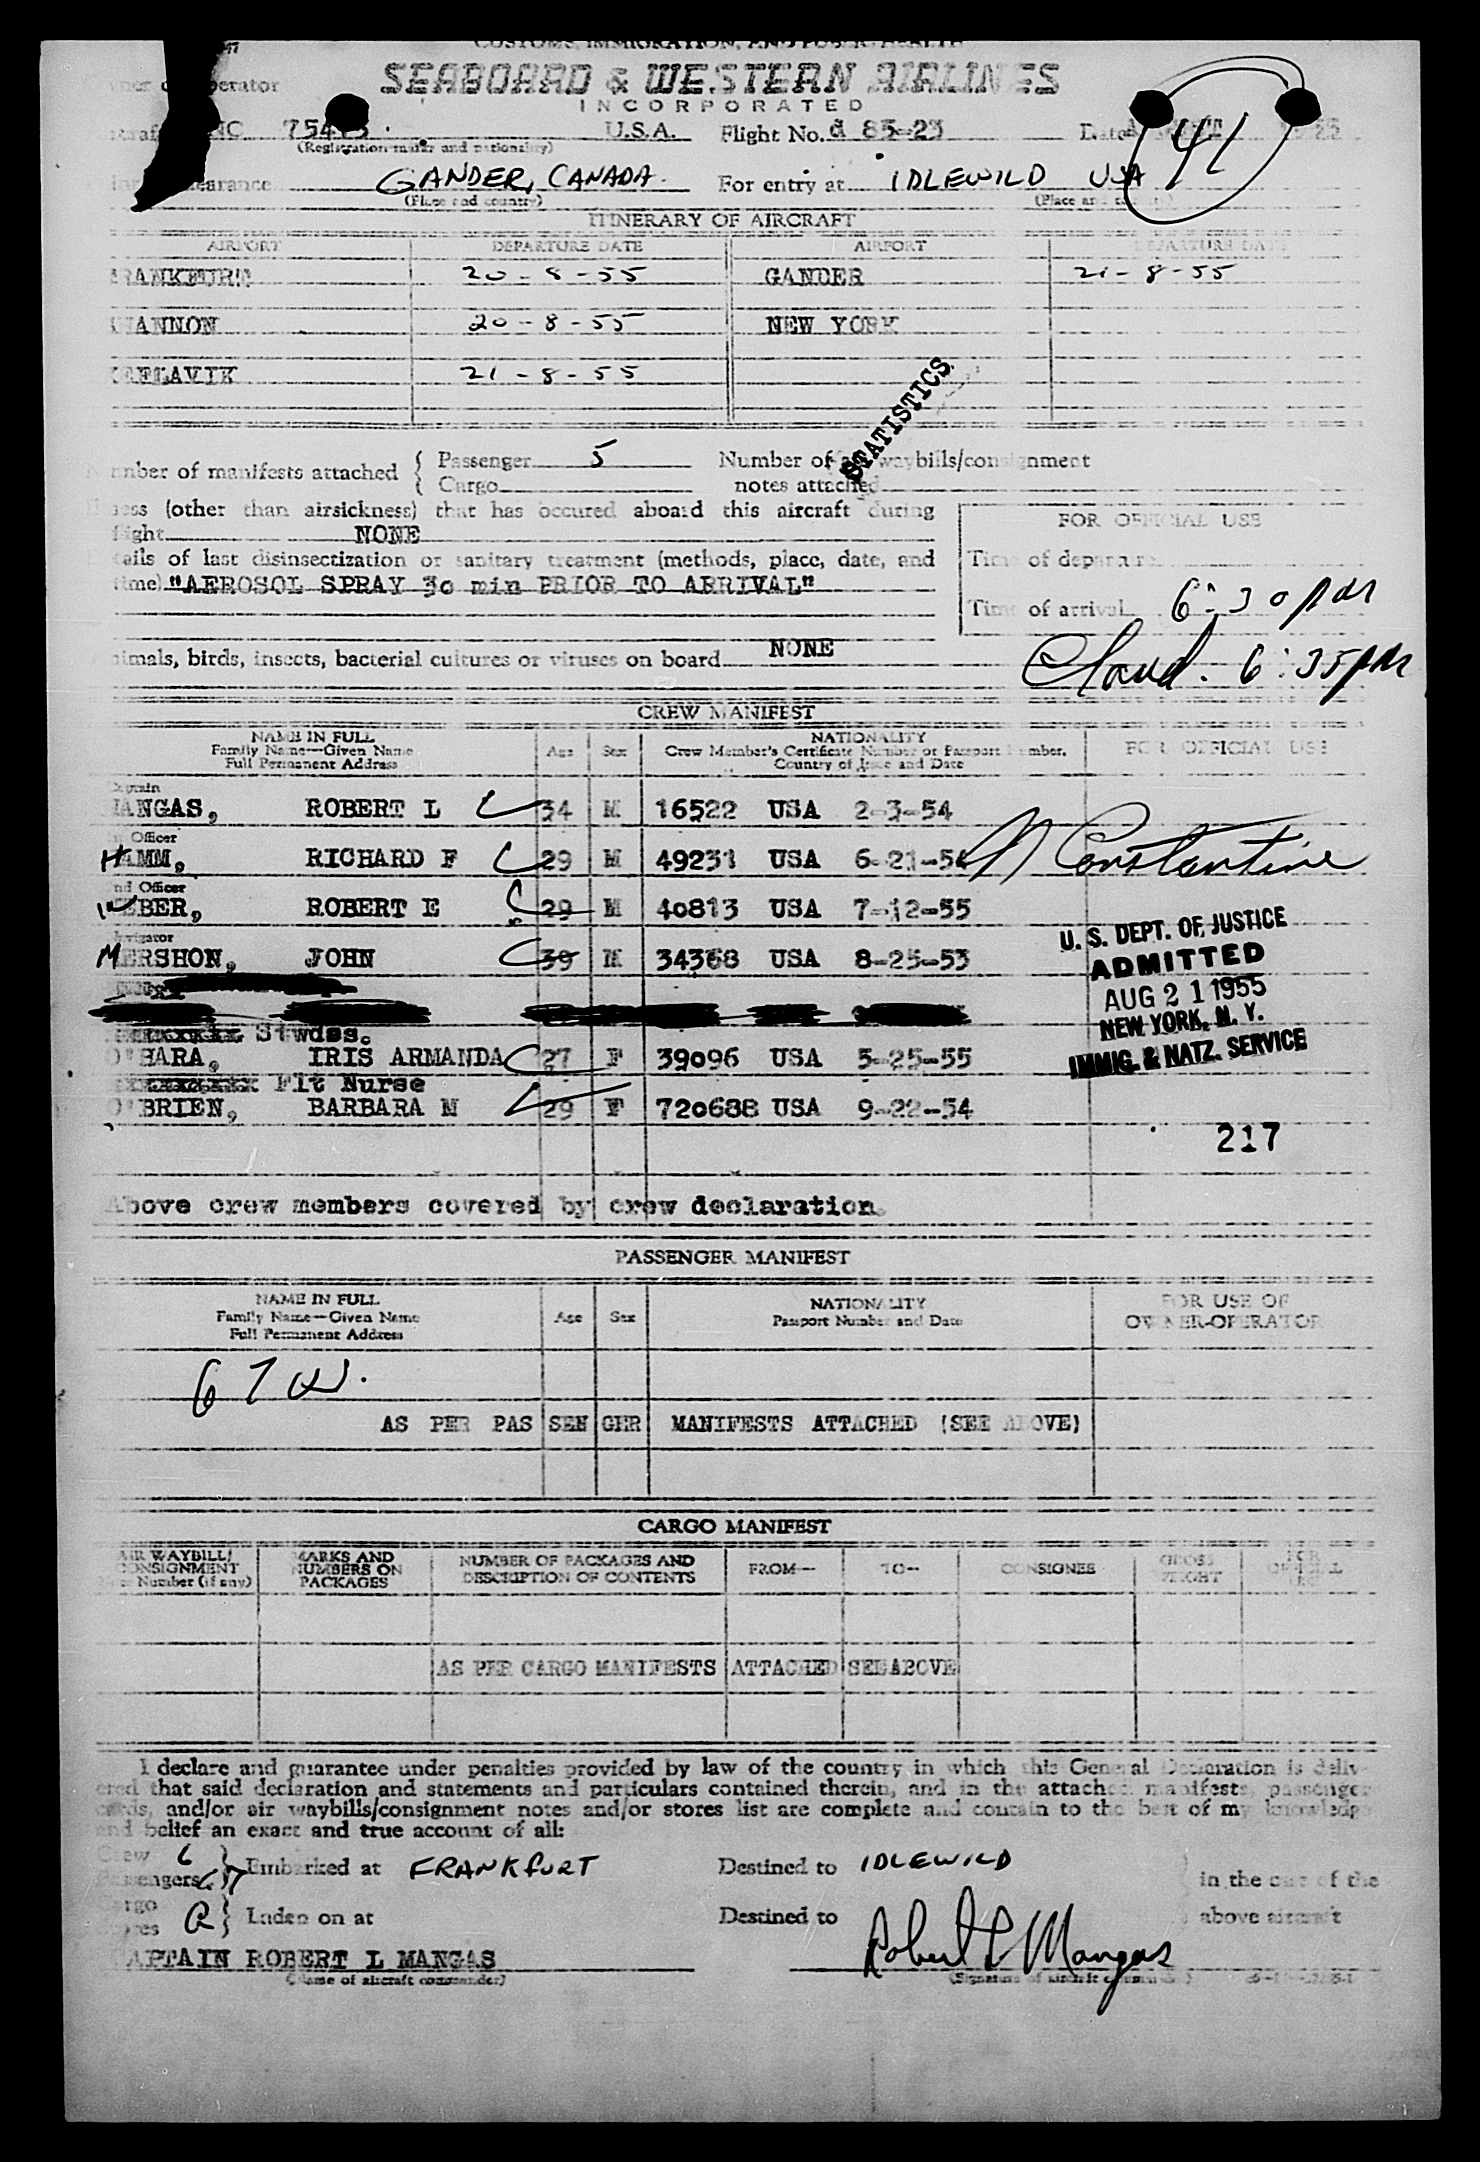 SEABOARD & WESTERN AIRLINES
INCORPORATED
U.S.A. Flight No. 85-23
(Registration and nationality)
41
GANDER, CANADA. For entry at IDLEWILD USA
(Place and country) (Place and
ITINERARY OF AIRCRAFT
AIRPORT DEPARTURE DATE AIRPORT DEPARTURE DATE
RANKFURT 20-8-55 GANDER 21-8-55
HANNON 20-8-55 NEW YORK
KEFLAVIK 21-8-55
STATISTICS
mber of manifests attached { Passenger 5 Number of waybills/consignment
{ Cargo notes attached
ness (other than airsickness) that has occured aboard this aircraft during
flight NONE
FOR OFFICIAL USE
tails of last disinsectization or sanitary treatment (methods, place, date, and
Time of departure
time) "AEROSOL SPRAY 30 min PRIOR TO ARRIVAL"
Time of arrival 6:30 pm
nimals, birds, insects, bacterial cultures or viruses on board NONE
6:35pm
CREW MANIFEST
NAME IN FULL
Family Name—Given Name
Full Permanent Address
Age Sex
NATIONALITY
Crew Member's Certificate Number or Passport Number,
Country of Issue and Date
FOR OFFICIAL USE
MANGAS, ROBERT L 34 M 16522 USA 2-3-54
Officer
HAMM, RICHARD F 29 M 49231 USA 6-21-54 N Constantine
nd Officer
WEBER, ROBERT E 29 M 40813 USA 7-12-55
Navigator
MERSHON, JOHN 39 M 34368 USA 8-25-53
U. S. DEPT. OF JUSTICE
ADMITTED
AUG 21 1955
NEW YORK, N. Y.
IMMIG. & NATZ. SERVICE
Stwdss.
O'HARA, IRIS ARMANDA 27 F 39096 USA 5-25-55
Flt Nurse
O'BRIEN, BARBARA M 29 F 720688 USA 9-22-54
217
Above crew members covered by crew declaration.
PASSENGER MANIFEST
NAME IN FULL
Family Name—Given Name
Full Permanent Address
Age Sex
NATIONALITY
Passport Number and Date
FOR USE OF
OWNER-OPERATOR
AS PER PAS SEN GER MANIFESTS ATTACHED (SEE ABOVE)
CARGO MANIFEST
AIR WAYBILL/
CONSIGNMENT
Number (if any)
MARKS AND
NUMBERS ON
PACKAGES
NUMBER OF PACKAGES AND
DESCRIPTION OF CONTENTS
FROM— TO— CONSIGNEE
GROSS
WEIGHT
AS PER CARGO MANIFESTS ATTACHED SEE ABOVE
I declare and guarantee under penalties provided by law of the country in which this General Declaration is deliv-
ered that said declaration and statements and particulars contained therein, and in the attached manifests, passenger
cards, and/or air waybills/consignment notes and/or stores list are complete and contain to the best of my knowledge
and belief an exact and true account of all:
Crew 6
Passengers 67 } Embarked at FRANKFURT Destined to IDLEWILD in the case of the
Cargo
} Laden on at Destined to above aircraft
CAPTAIN ROBERT L MANGAS Robert L Mangas
(Name of aircraft commander) (Signature of aircraft commander)